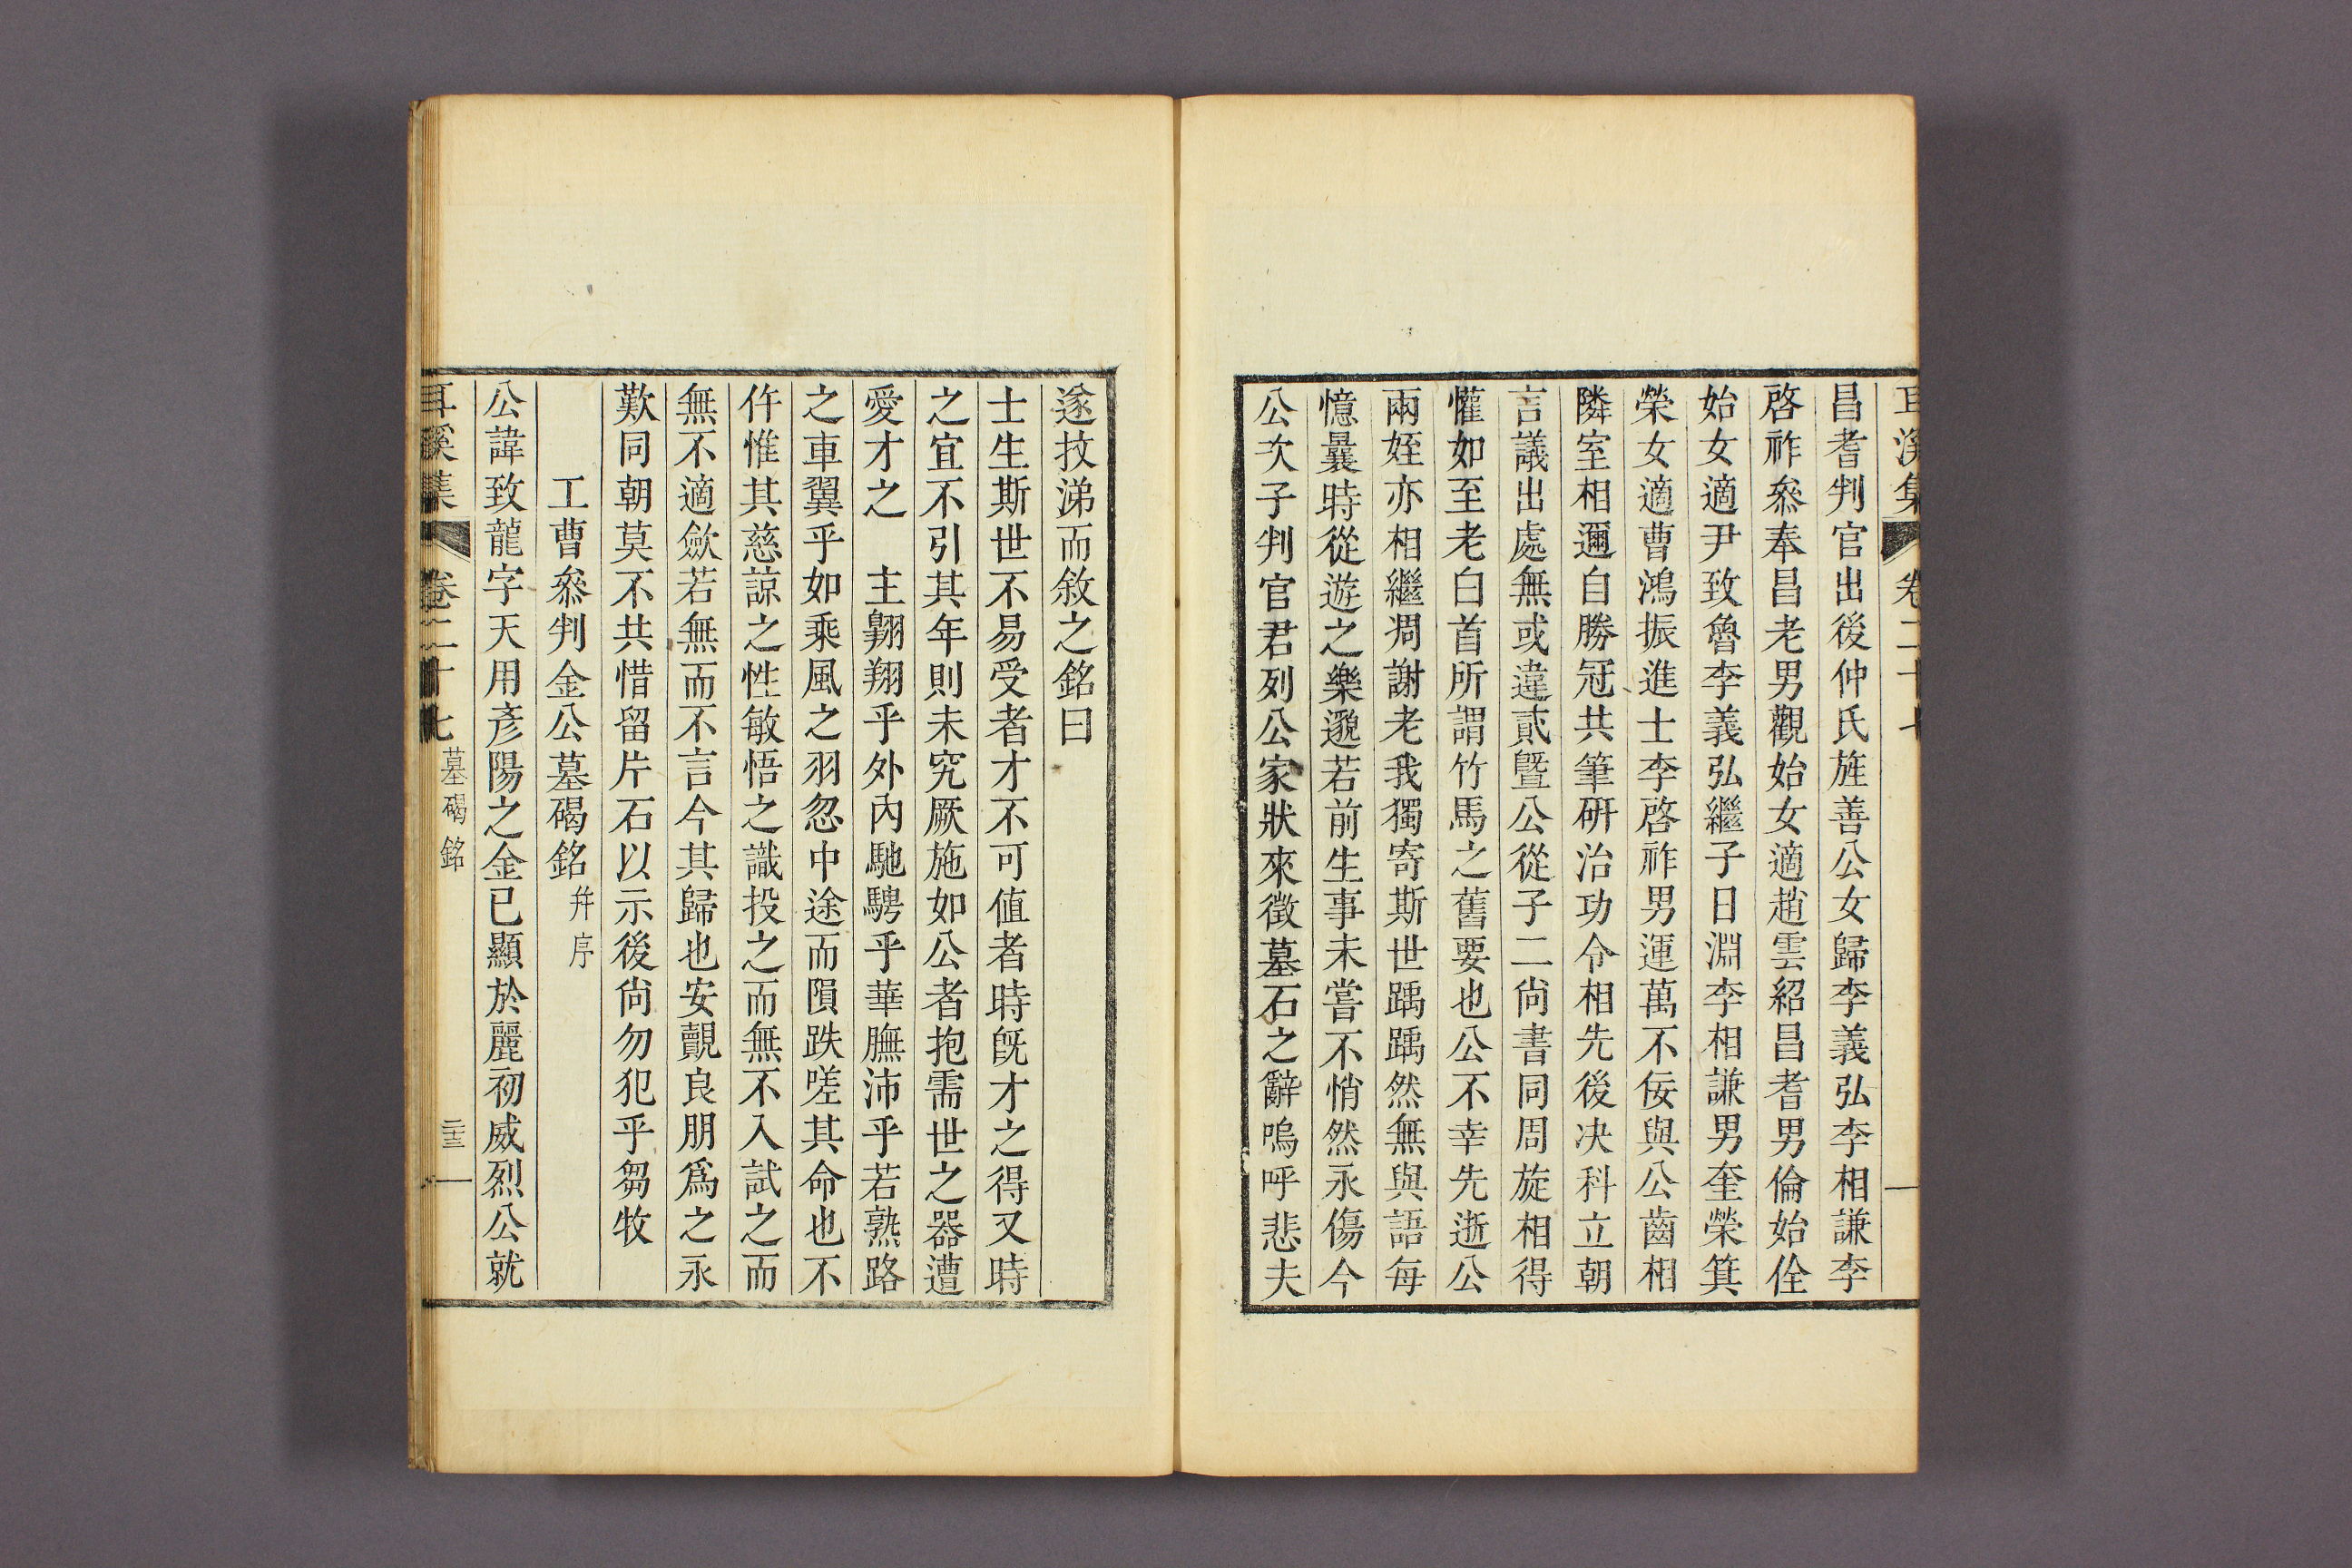 耳溪集 卷二十七
昌耆判官出後仲氏旌善公女歸李義弘李相謙李
啓祚叅奉昌老男觀始女適趙雲紹昌耆男倫始佺
始女適尹致魯李義弘繼子日淵李相謙男奎榮箕
榮女適曹鴻振進士李啓祚男運萬不佞與公齒相
隣室相邇自勝冠共筆硏治功令相先後决科立朝
言議出處無或違貳曁公從子二尙書同周旋相得
懽如至老白首所謂竹馬之舊要也公不幸先逝公
兩姪亦相繼凋謝老我獨寄斯世踽踽然無與語每
憶曩時從遊之樂邈若前生事未嘗不悄然永傷今
公次子判官君列公家狀來徵墓石之辭嗚呼悲夫
遂抆涕而敘之銘曰
士生斯世不易受者才不可値者時旣才之得又時
之宜不引其年則未究厥施如公者抱需世之器遭
愛才之 主翺翔乎外內馳騁乎華膴沛乎若熟路
之車翼乎如乘風之羽忽中途而隕跌嗟其命也不
仵惟其慈諒之性敏悟之識投之而無不入試之而
無不適歛若無而不言今其歸也安覿良朋爲之永
歎同朝莫不共惜留片石以示後尙勿犯乎芻牧
工曹叅判金公墓碣銘 幷序
公諱致龍字天用彥陽之金已顯於麗初威烈公就
耳溪集 卷二十七 墓碣銘 二十三